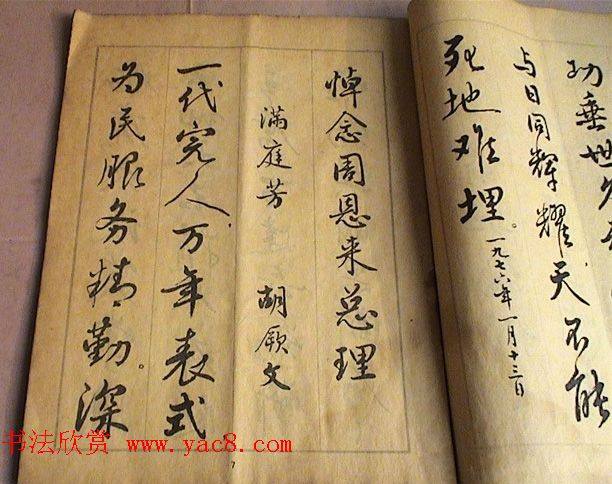 功垂世
与日同辉耀，天不能
死地难埋。
一九七六年一月十三日
悼念周恩来总理
满庭芳 胡厥文
一代完人，万年表式
为民服务精勤。深
7
书法欣赏 www.yac8.com